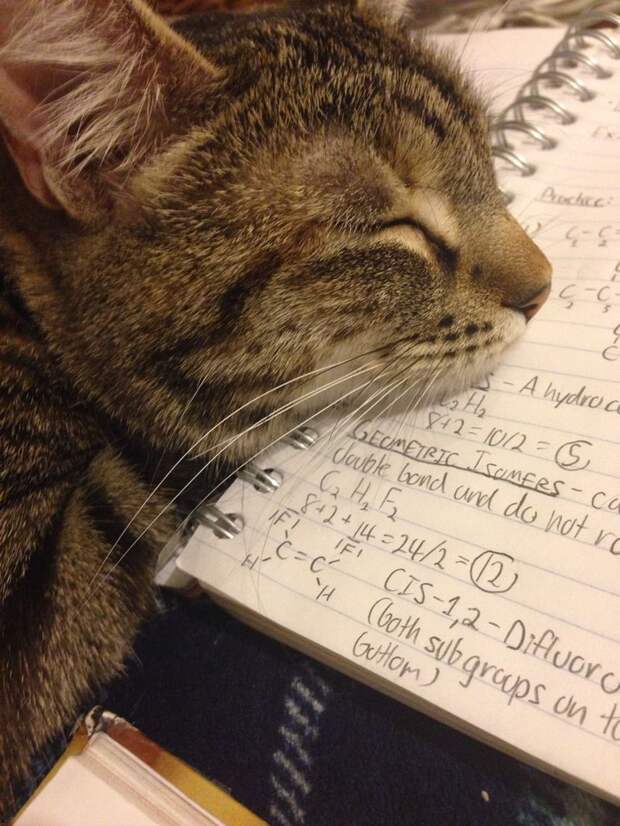 Ex
Practice:
C₁-C₂
C₂-C₃
S - A hydroca
C₂H₂
8+2=10/2=⑤
GEOMETRIC ISOMERS - ca
double bond and do not ro
C₂H₂F₂
8+2+14=24/2=⑫
|F| |F|
H-C=C-H
CIS-1,2-Difluoro
(both subgroups on to
bottom)